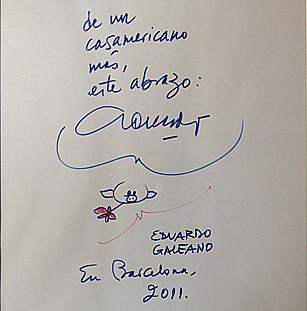 de un
casamericano
más,
este abrazo:
EDUARDO
GALEANO
En Barcelona,
2011.